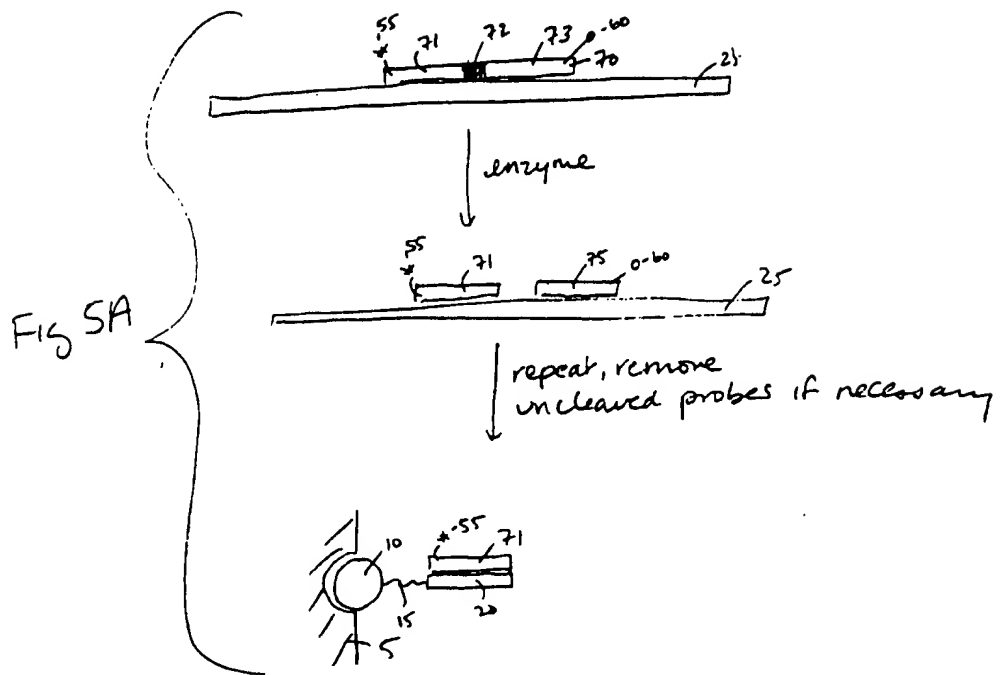 55 71 72 73 60
* 70 25
enzyme
55 71 75 0-60
* 25
Fig 5A
repeat, remove
uncleaved probes if necessary
10 *-55 71
15 20
5